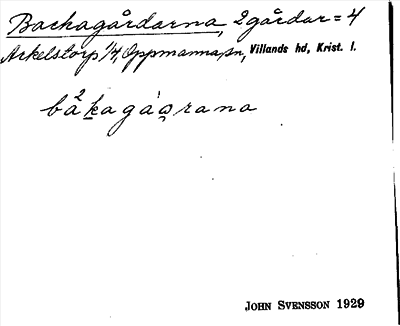 Backagårdarna, 2 gårdar = 4
Arkelstorp 1/4, Oppmanna sn, Villands hd, Krist. l.
JOHN SVENSSON 1929